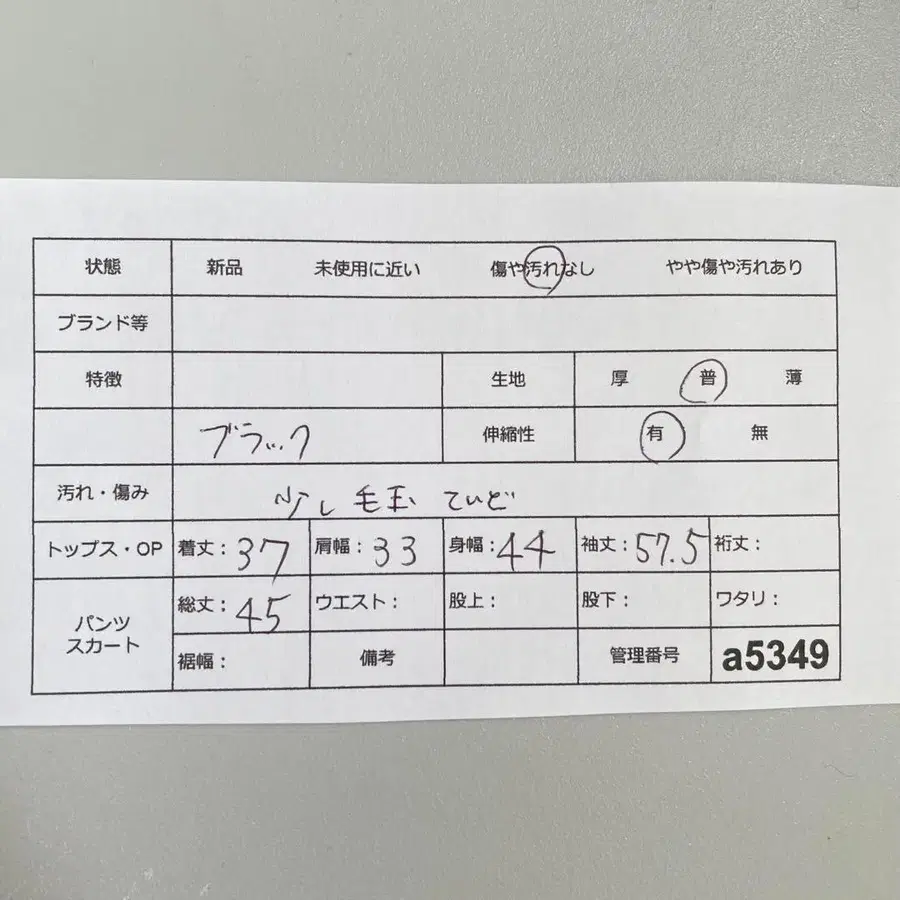 状態 新品 未使用に近い 傷や汚れなし やや傷や汚れあり
ブランド等
特徴 生地 厚 普 薄
ブラック 伸縮性 有 無
汚れ・傷み 少し毛玉 ていど
トップス・OP 着丈：37 肩幅：33 身幅：44 袖丈：57.5 裄丈：
パンツ
スカート
総丈：45 ウエスト： 股上： 股下： ワタリ：
裾幅： 備考 管理番号 a5349